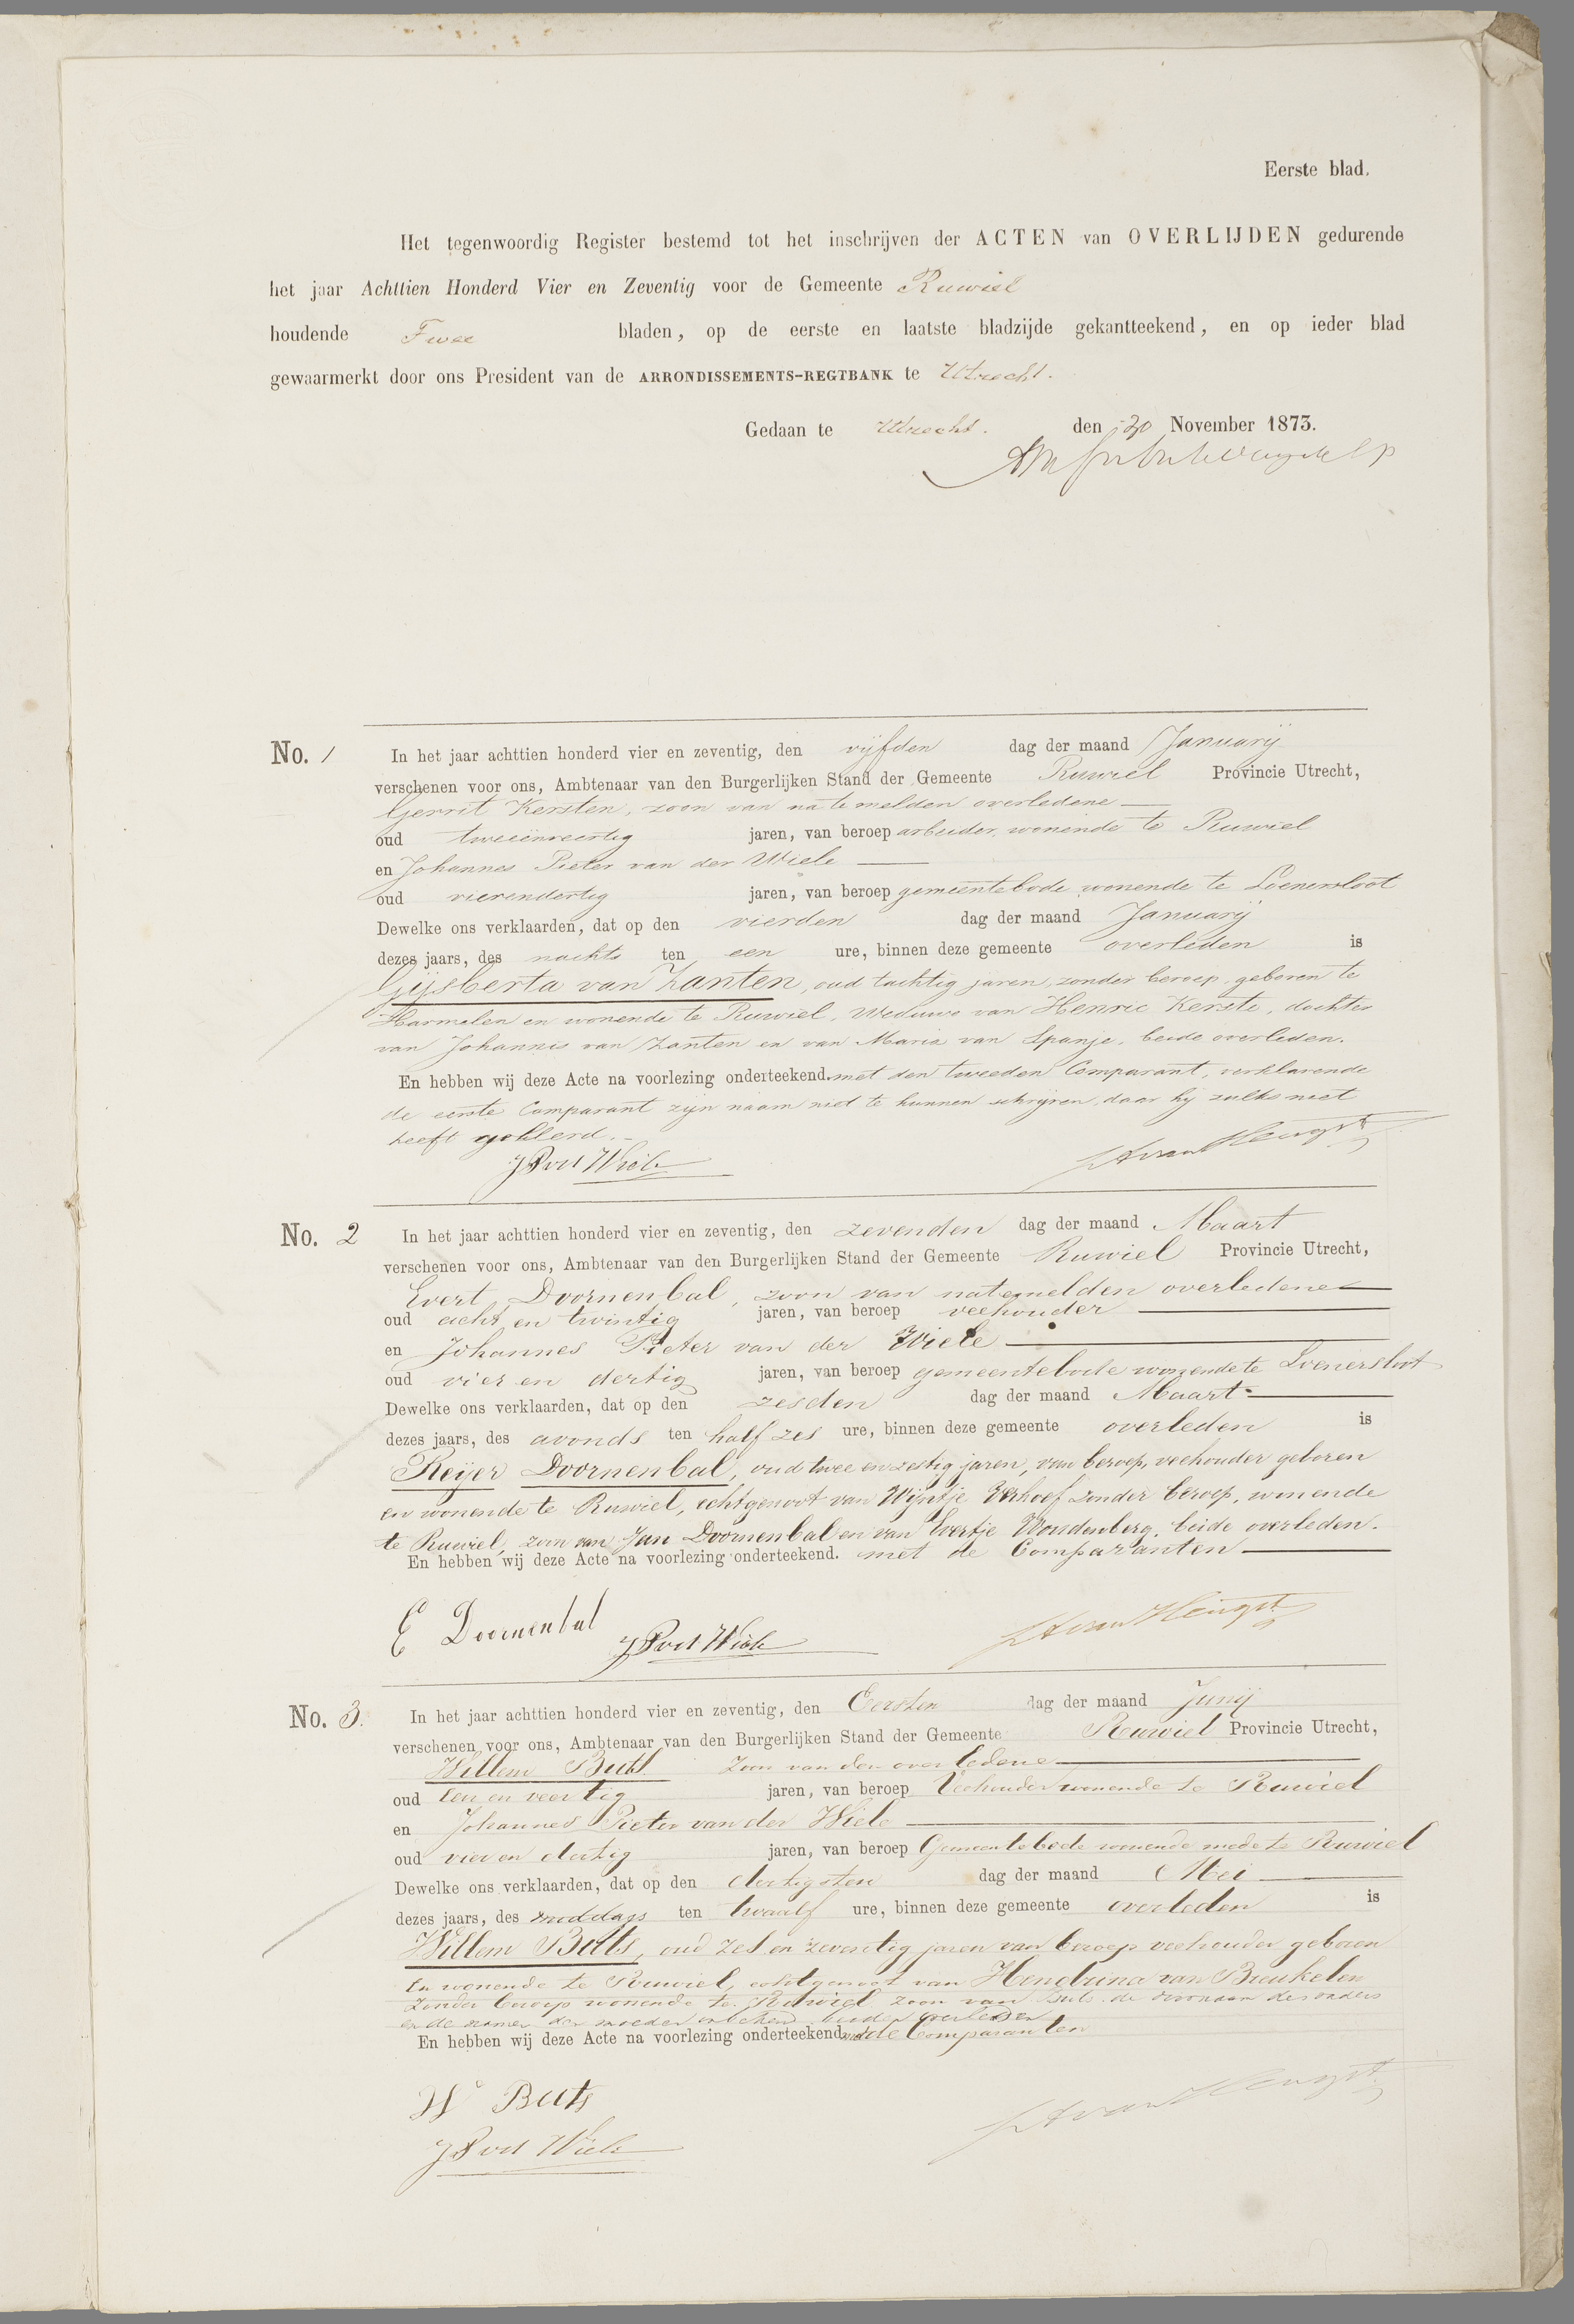 Eerste blad.
Het tegenwoordig Register bestemd tot het inschrijven der ACTEN van OVERLIJDEN gedurende
het jaar Achttien Honderd Vier en Zeventig voor de Gemeente Ruwiel
houdende Twee bladen, op de eerste en laatste bladzijde gekantteekend, en op ieder blad
gewaarmerkt door ons President van de ARRONDISSEMENTS-REGTBANK te Utrecht.
Gedaan te Utrecht. den 30 November 1873.
No. 1 In het jaar achttien honderd vier en zeventig, den vijfden dag der maand Januarij
verschenen voor ons, Ambtenaar van den Burgerlijken Stand der Gemeente Ruwiel Provincie Utrecht,
Gerrit Kersten, zoon van na te melden overledene
oud tweeënveertig jaren, van beroep arbeider, wonende te Ruwiel
en Johannes Pieter van der Wiele
oud vierendertig jaren, van beroep gemeentebode wonende te Loenersloot
Dewelke ons verklaarden, dat op den vierden dag der maand Januarij
dezes jaars, des nachts ten een ure, binnen deze gemeente overleden is
Gijsberta van Zanten, oud tachtig jaren, zonder beroep, geboren te
Harmelen en wonende te Ruwiel, Weduwe van Henric Kerste, dochter
van Johannis van Zanten en van Maria van Spanje, beide overleden.
En hebben wij deze Acte na voorlezing onderteekend. met den tweeden Comparant, verklarende
de eerste Comparant zijn naam niet te kunnen schrijven, daar hij zulks niet
heeft geleerd.
JP vd Wiele HA van Hengst
No. 2 In het jaar achttien honderd vier en zeventig, den zevenden dag der maand Maart
verschenen voor ons, Ambtenaar van den Burgerlijken Stand der Gemeente Ruwiel Provincie Utrecht,
Evert Doornenbal, zoon van natemelden overledene
oud acht en twintig jaren, van beroep veehouder
en Johannes Pieter van der Wiele
oud vier en dertig jaren, van beroep gemeentebode wonende te Loenersloot
Dewelke ons verklaarden, dat op den zesden dag der maand Maart
dezes jaars, des avonds ten half zes ure, binnen deze gemeente overleden is
Reijer Doornenbal, oud twee en zestig jaren, van beroep, veehouder geboren
en wonende te Ruwiel, echtgenoot van Wijntje Verhoef zonder beroep, wonende
te Ruwiel, zoon van Jan Doornenbal en van Evertje Woudenberg, beide overleden.
En hebben wij deze Acte na voorlezing onderteekend. met de Comparanten
E Doornenbal JP vd Wiele HA van Hengst
No. 3. In het jaar achttien honderd vier en zeventig, den Eersten dag der maand Junij
verschenen voor ons, Ambtenaar van den Burgerlijken Stand der Gemeente Ruwiel Provincie Utrecht,
Willem Buts Zoon van den overledene
oud een en veertig jaren, van beroep Veehouder wonende te Ruwiel
en Johannes Pieter van der Wiele
oud vier en dertig jaren, van beroep Gemeentebode wonende mede te Ruwiel
Dewelke ons verklaarden, dat op den dertigsten dag der maand Mei
dezes jaars, des middags ten twaalf ure, binnen deze gemeente overleden is
Willem Buts, oud zes en zeventig jaren van beroep veehouder geboren
En wonende te Ruwiel, echtgenoot van Hendrina van Breukelen
zonder beroep wonende te Ruwiel zoon van Buts de voornaam des vaders
en de namen der moeder onbekend beiden overleden
En hebben wij deze Acte na voorlezing onderteekend. met de Comparanten
W Buts
JP vd Wiele HA van Hengst